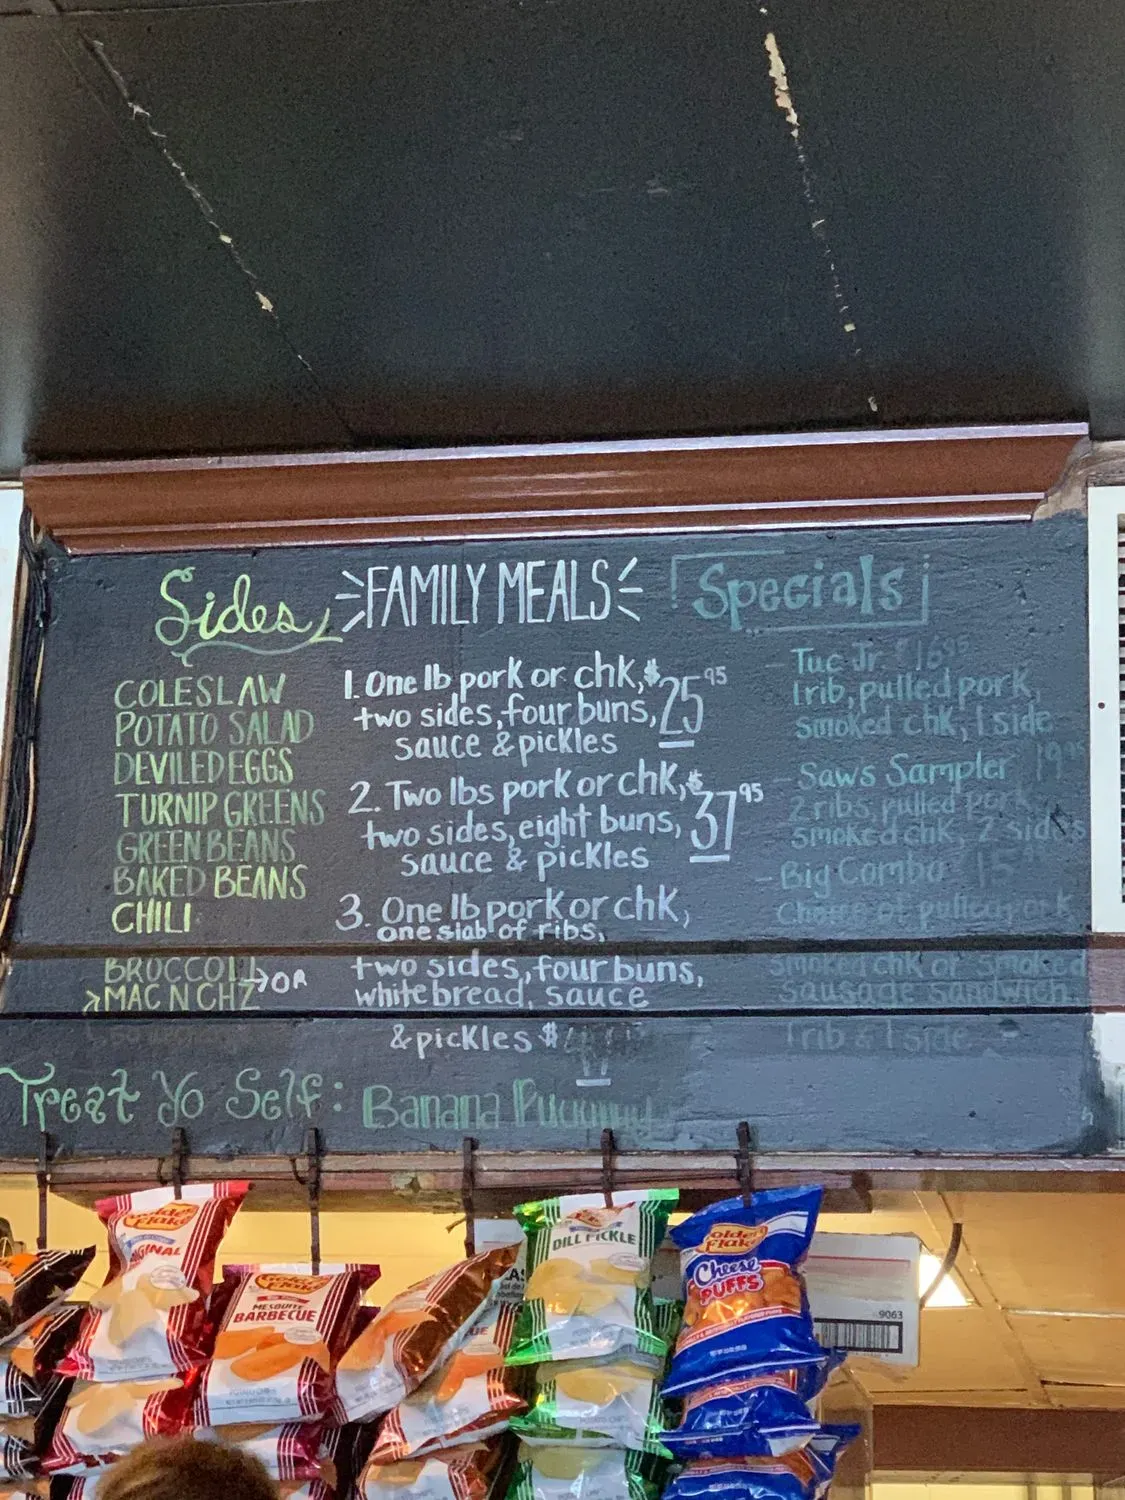 Sides
COLESLAW
POTATO SALAD
DEVILED EGGS
TURNIP GREENS
GREEN BEANS
BAKED BEANS
CHILI
BROCCOLI
MAC N CHZ
OR
FAMILY MEALS
1. One lb pork or chk, $25.95
two sides, four buns,
sauce & pickles
2. Two lbs pork or chk, $37.95
two sides, eight buns,
sauce & pickles
3. One lb pork or chk,
one slab of ribs,
two sides, four buns,
white bread, sauce
& pickles $
Specials
- Tuc Jr. $16.95
1 rib, pulled pork,
smoked chk, 1 side
- Saws Sampler 19.95
2 ribs, pulled pork,
smoked chk, 2 sides
- Big Combo 15
pulled pork
smoked chk or smoked
sausage sandwich
1 rib & 1 side
Treat Yo Self: Banana Pudding
Golden Flake
ORIGINAL
Golden Flake
MESQUITE
BARBECUE
DILL PICKLE
Golden Flake
Cheese
PUFFS
9063